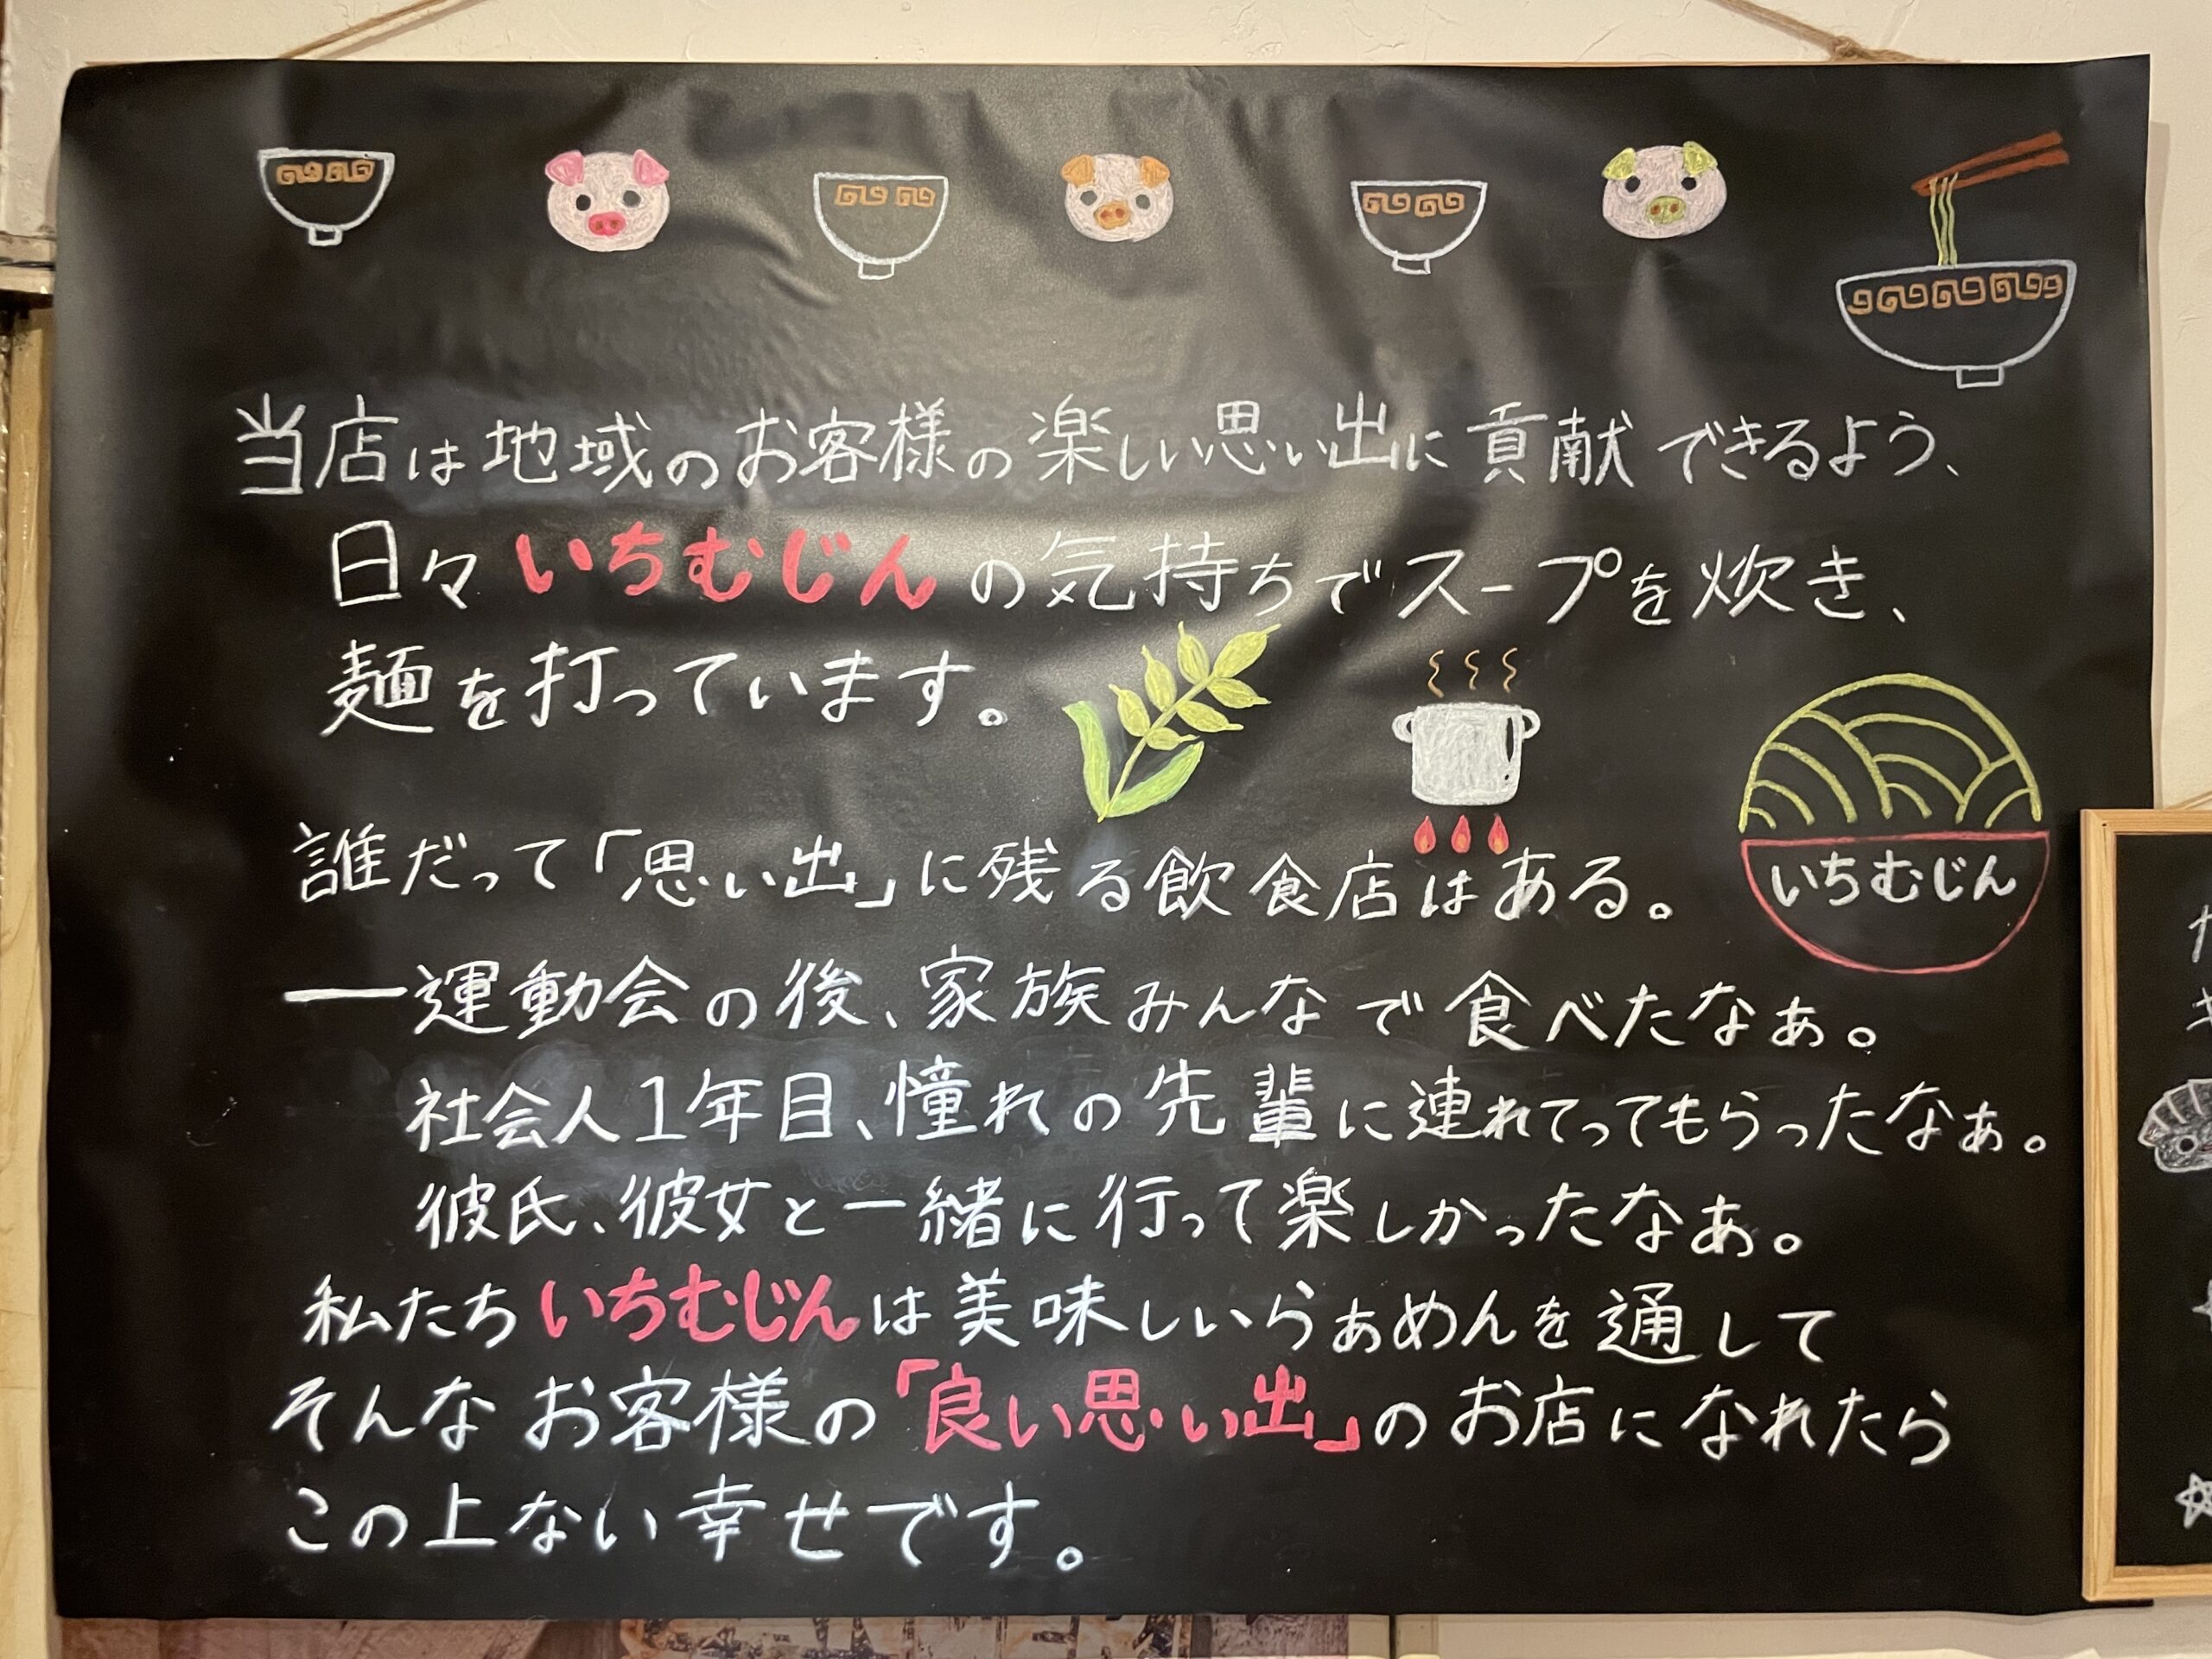 当店は地域のお客様の楽しい思い出に貢献できるよう、
日々いちむじんの気持ちでスープを炊き、
麺を打っています。
いちむじん
誰だって「思い出」に残る飲食店はある。
━運動会の後、家族みんなで食べたなぁ。
社会人1年目、憧れの先輩に連れてってもらったなぁ。
彼氏、彼女と一緒に行って楽しかったなぁ。
私たちいちむじんは美味しいらぁめんを通して
そんなお客様の「良い思い出」のお店になれたら
この上ない幸せです。